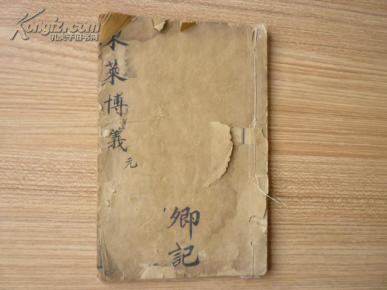 Kongfz.com
孔夫子旧书网
萊博義元
卿記